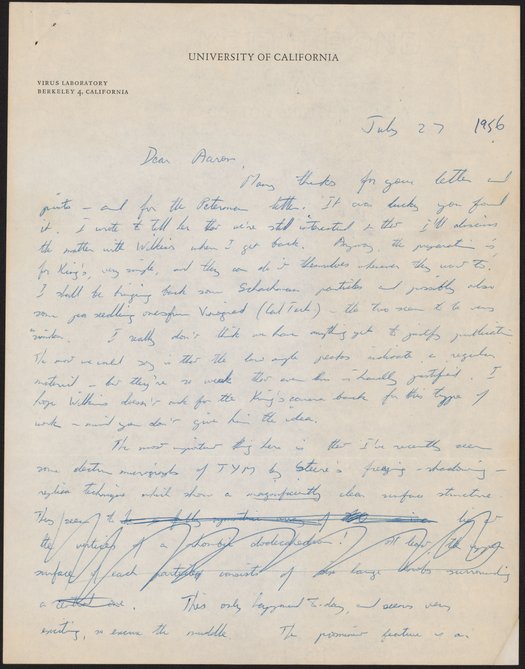 UNIVERSITY OF CALIFORNIA
VIRUS LABORATORY
BERKELEY 4, CALIFORNIA
July 27 1956
Dear Aaron,
Many thanks for your letter and
prints – and for the Peterman letter. It was lucky you found
it. I wrote to tell her that we're still interested & that I'll discuss
the matter with Wilkins when I get back. Anyway, the preparation is,
for King's, very simple, and they can do it themselves whenever they want to.
I shall be bringing back some Schachman particles and possibly also
some pea seedling ones from Vinograd (Cal Tech) – the two seem to be very
similar. I really don't think we have anything yet to justify publication
The most we could say is that the low angle photos indicate a regular
material – but they're so weak that even this is hardly justified. I
hope Wilkins doesn't ask for the King's camera back for this type of
work – mind you don't give him the idea.
The most important thing here is that I've recently seen
some electron micrographs of TYM by Steere's freezing – shadowing –
replica technique which show a magnificently clear surface structure.
This seems to be
the vertices of a rhombic dodecahedron! At least the
surface of each particle consists of large blobs surrounding
a central one. This only happened to-day, and seems very
exciting, so excuse the muddle. The prominent feature is an